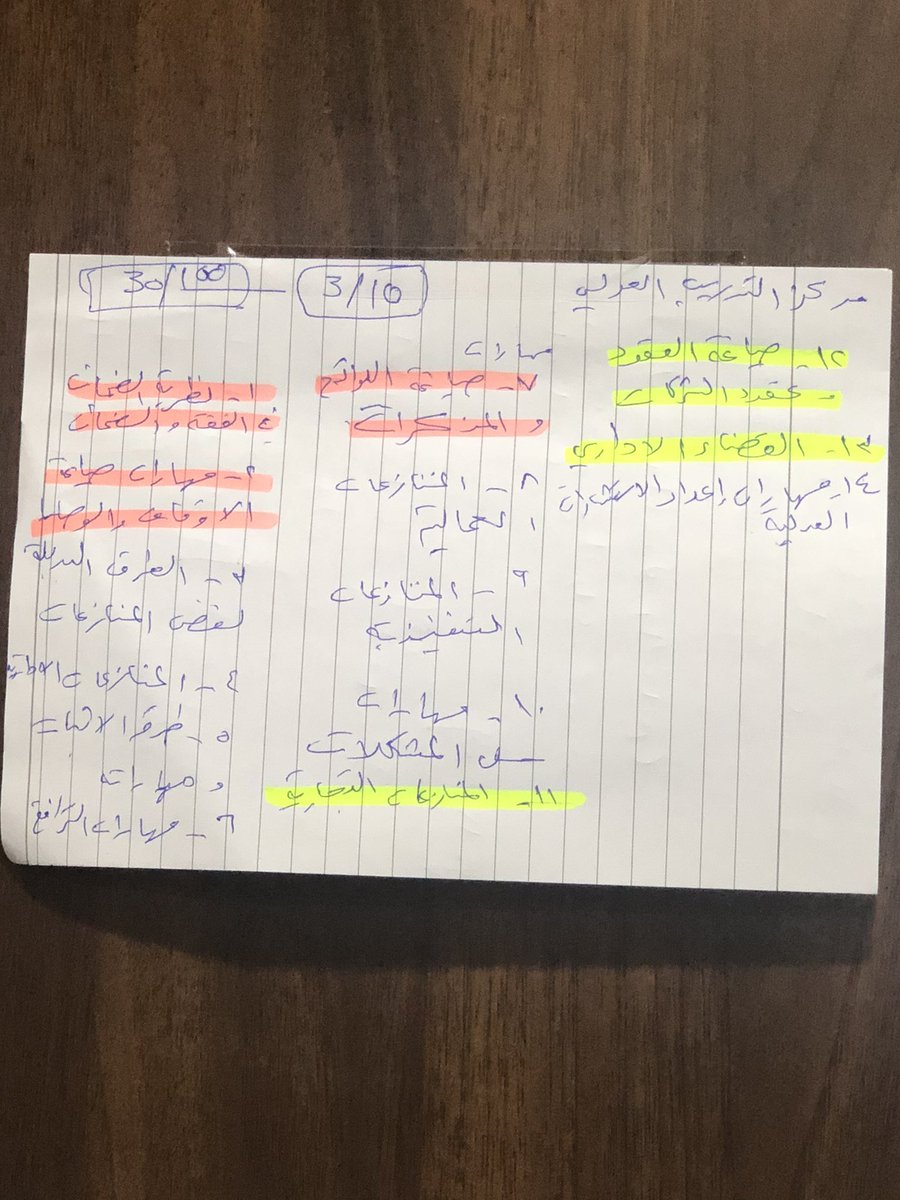 مركز التدريب العدلي
3/10
30/100
١- نظرية الضمان
في الفقه والضمان
٢- مهارات صياغة
الاوقاف والوصايا
٣- الطرق البديلة
لفض المنازعات
٤- المنازعات
٥- طرق الاثبات
و مهاراته
٦- مهارات الترافع
مهارات
٧- صياغة اللوائح
و المذكرات
٨- المنازعات
العمالية
٩- المنازعات
التنفيذية
١٠- مهارات
حل المشكلات
١١- المنازعات التجارية
١٢- صياغة العقود
و عقود الشركات
١٣- القضاء الاداري
١٤- مهارات إعداد الاستشارات
العدلية